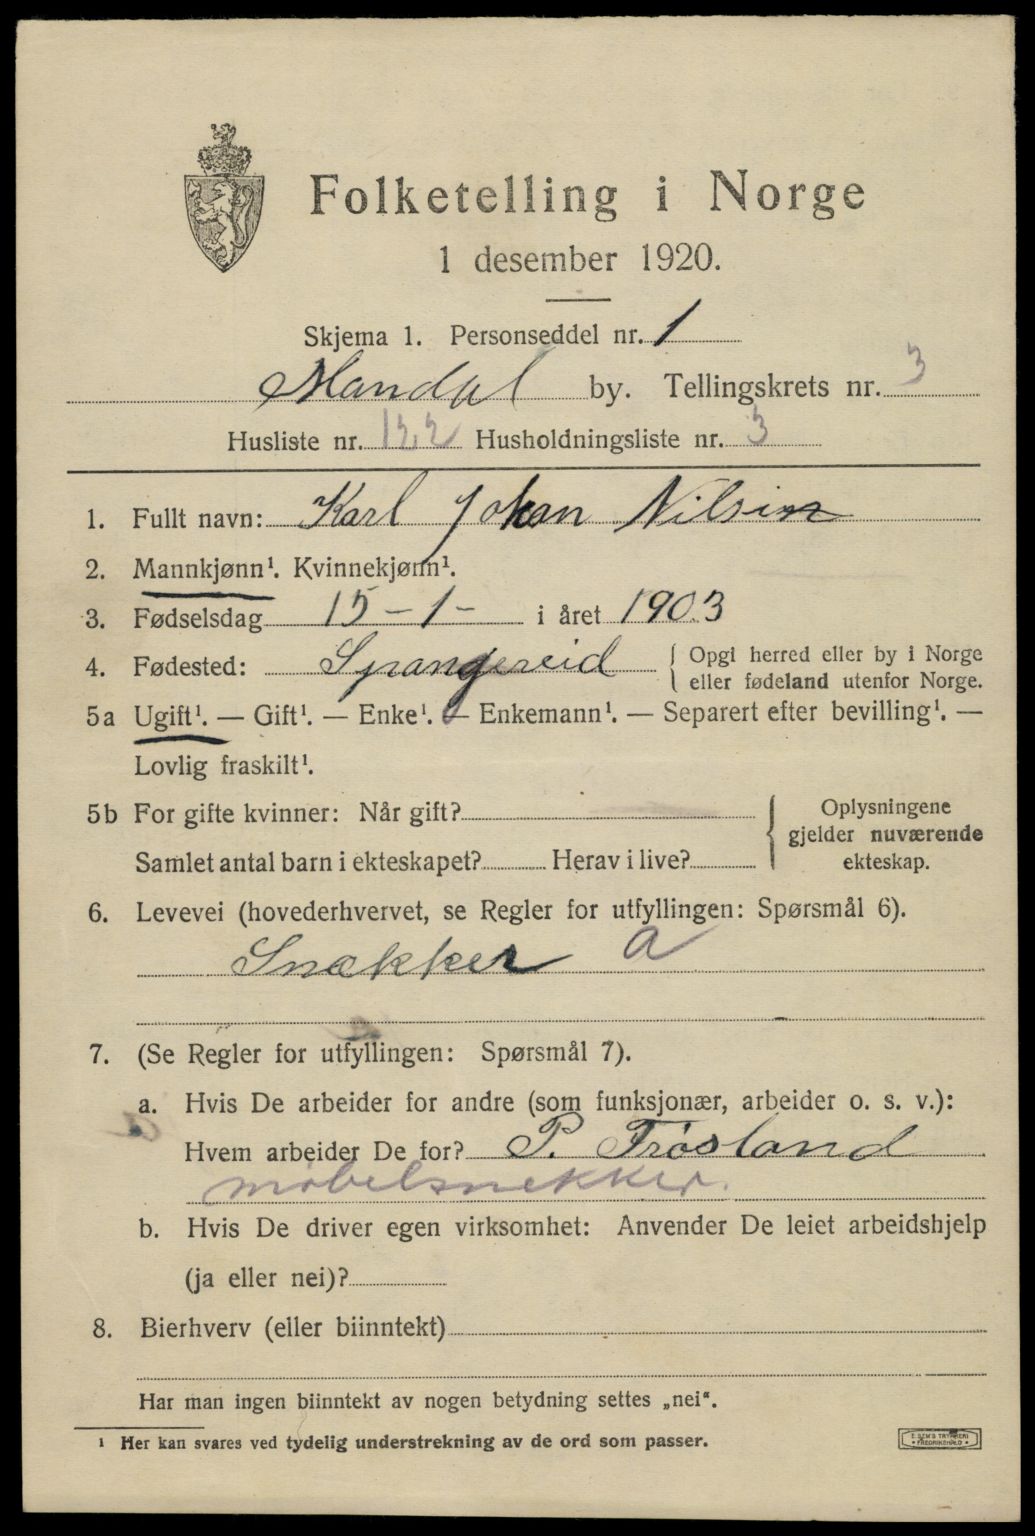 Folketelling i Norge
1 desember 1920.
Skjema 1. Personseddel nr. 1
Mandal by. Tellingskrets nr. 3
Husliste nr. 122 Husholdningsliste nr. 3
1. Fullt navn: Karl Johan Nilsen
2. Mannkjønn¹. Kvinnekjønn¹.
3. Fødselsdag 15 - 1 - i året 1903
4. Fødested: Spangereid { Opgi herred eller by i Norge
eller fødeland utenfor Norge.
5a Ugift¹. — Gift¹. — Enke¹. — Enkemann¹. — Separert efter bevilling¹. —
Lovlig fraskilt¹.
5b For gifte kvinner: Når gift?
Samlet antal barn i ekteskapet? Herav i live?
{ Oplysningene
gjelder nuværende
ekteskap.
6. Levevei (hovederhvervet, se Regler for utfyllingen: Spørsmål 6).
Snækker a
7. (Se Regler for utfyllingen: Spørsmål 7).
a. Hvis De arbeider for andre (som funksjonær, arbeider o. s. v.):
Hvem arbeider De for? P. Frøsland
møbelsnekker.
b. Hvis De driver egen virksomhet: Anvender De leiet arbeidshjelp
(ja eller nei)?
8. Bierhverv (eller biinntekt)
Har man ingen biinntekt av nogen betydning settes „nei".
¹ Her kan svares ved tydelig understrekning av de ord som passer.
E. SEM'S TRYKKERI
FREDRIKSHALD